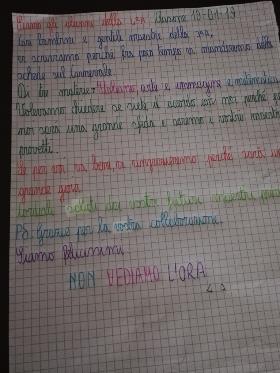 Siamo gli alunni della 5A
Cari bambini e gentili maestre della 3A,
vi scriviamo perché fra poco tempo vi manderemo delle
schede sul Carnevale
Di tre materie: Italiano, arte e immagine e matematica
Volevamo chiedere se siete d'accordo con noi perché
non sarà una grande sfida e saremo i vostri maestri
provetti.
Se per voi va bene, vi ringraziamo perché sarà una
grande gara.
cordiali saluti dai vostri futuri maestri
PS. Grazie per la vostra collaborazione.
Siamo felicissimi
NON VEDIAMO L'ORA